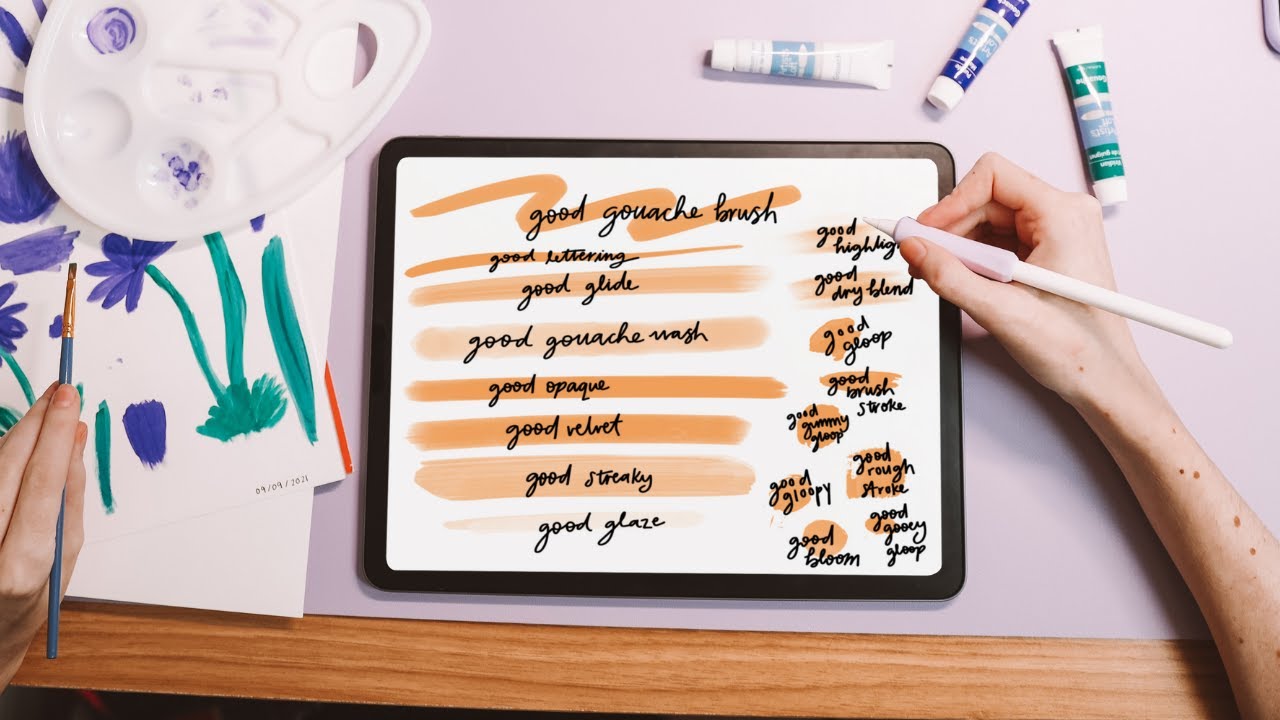 good gouache brush
good lettering
good glide
good gouache wash
good opaque
good velvet
good streaky
good glaze
good
good
dry blend
good
gloop
good
brush
stroke
good
gummy
gloop
good
rough
stroke
good
gloopy
good
gooey
gloop
good
bloom
09/09/2021
Gouache
Artists
Loft
Gouache
Artist's
Loft
Viridian